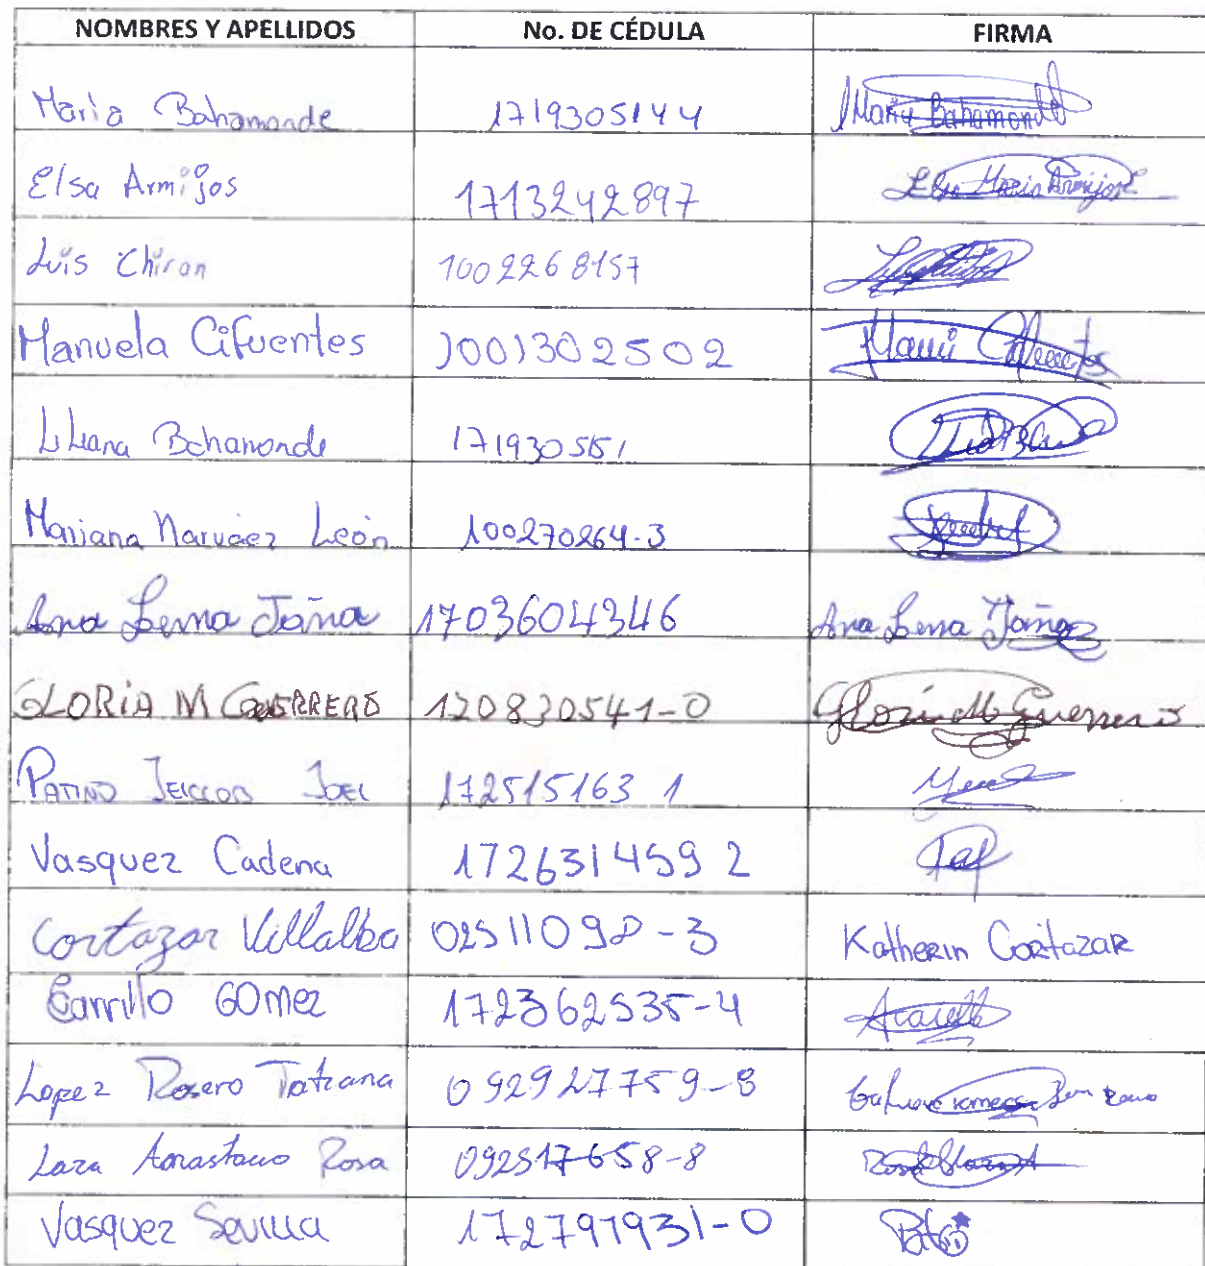 NOMBRES Y APELLIDOS No. DE CÉDULA FIRMA
Maria Bahamonde 1719305144 Maria Bahamonde
Elsa Armijos 1713242897 Elsa Maria Armijos
Luis Chiran 1002268157
Manuela Cifuentes 1001302502 Cifuentes
Liliana Bahamonde 171930551
Mariana Narváez León 100270264-3
Ana Lema Toña 1703604346 Ana Lema
GLORIA M GUERRERO 120830541-0 Gloria M Guerrero
PATIÑO JOEL 172515163 1
Vasquez Cadena 172631459 2
Cortazar Villalba 02511098-3 Katherin Cortazar
Carrillo Gomez 172362535-4
Lopez Rosero Tatiana 092927759-8
Lara Anastacio Rosa 092517658-8
Vasquez Sevilla 172797931-0